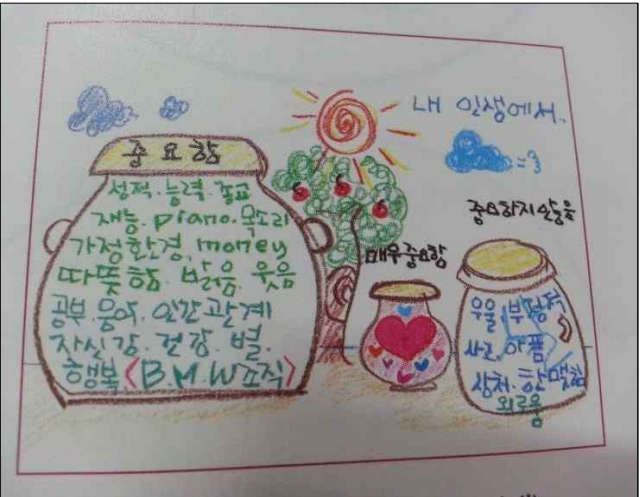 내 인생에서..
중요함
성적. 능력. 종교
재능. Piano. 목소리
가정환경, money
따뜻함. 밝음. 웃음
공부. 음악. 인간관계
자신감. 건강. 별.
행복 <B.M.W조직>
매우중요함
중요하지않음
우울. 부정적
사고. 아픔
상처. 한맺힘
외로움